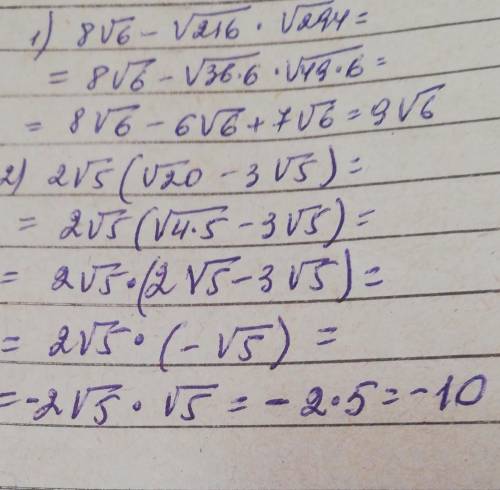 1) 8√6 - √216 · √294 =
= 8√6 - √36·6 · √49·6 =
= 8√6 - 6√6 + 7√6 = 9√6
2) 2√5 (√20 - 3√5) =
= 2√5 (√4·5 - 3√5) =
= 2√5 · (2√5 - 3√5) =
= 2√5 · (-√5) =
= -2√5 · √5 = -2·5 = -10